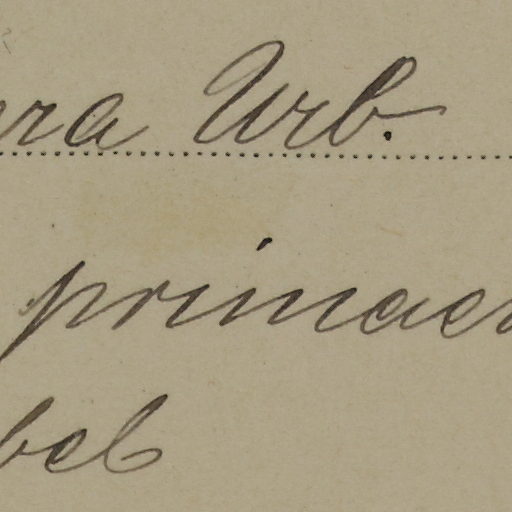 ra Urb.
primae
beb